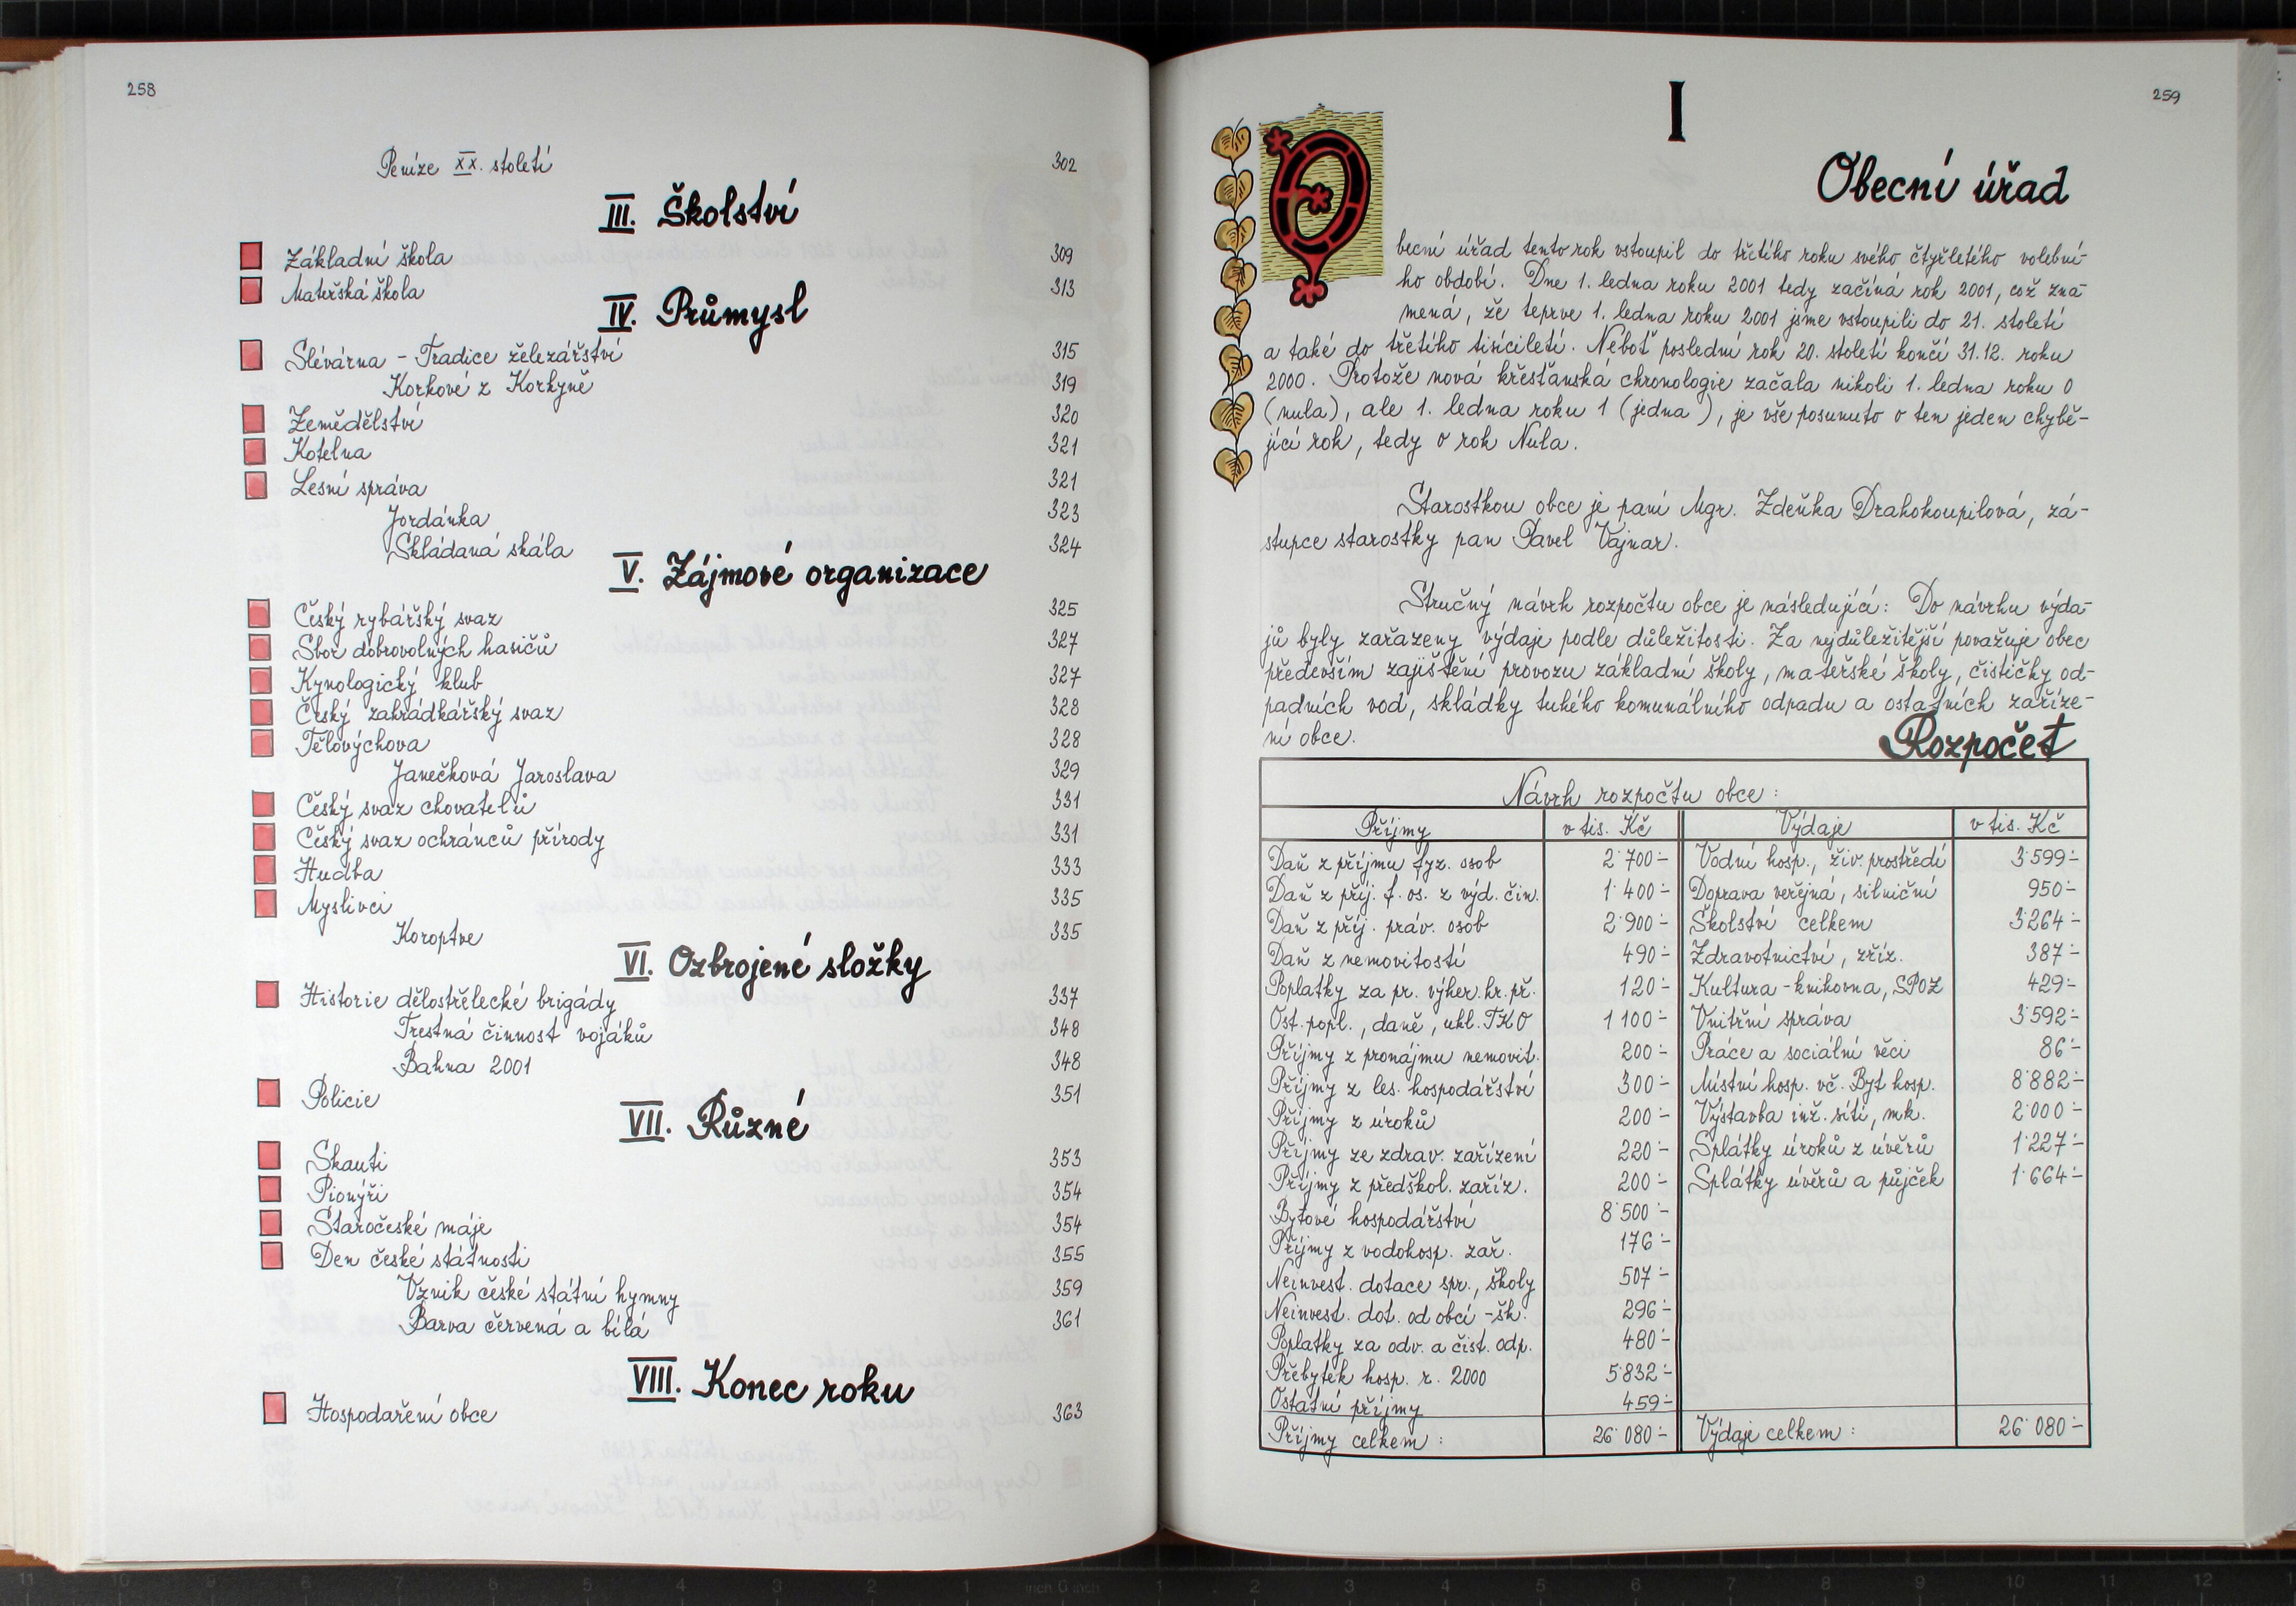 258
Peníze XX. století 302
III. Školství
Základní škola 309
Mateřská škola 313
IV. Průmysl
Slévárna - Tradice železářství 315
Korkové z Korkyně 319
Zemědělství 320
Kotelna 321
Lesní správa 321
Jordánka 323
Skládaná skála 324
V. Zájmové organizace
Český rybářský svaz 325
Sbor dobrovolných hasičů 327
Kynologický klub 327
Český zahrádkářský svaz 328
Tělovýchova 328
Janečková Jaroslava 329
Český svaz chovatelů 331
Český svaz ochránců přírody 331
Hudba 333
Myslivci 335
Koroptve 335
VI. Ozbrojené složky
Historie dělostřelecké brigády 337
Trestná činnost vojáků 348
Bahna 2001 348
Policie 351
VII. Různé
Skauti 353
Pionýři 354
Staročeské máje 354
Den české státnosti 355
Vznik české státní hymny 359
Barva červená a bílá 361
VIII. Konec roku
Hospodaření obce 363
259
I
Obecní úřad
Obecní úřad tento rok vstoupil do třetího roku svého čtyřletého volební-
ho období. Dne 1. ledna roku 2001 tedy začíná rok 2001, což zna-
mená, že teprve 1. ledna roku 2001 jsme vstoupili do 21. století
a také do třetího tisíciletí. Neboť poslední rok 20. století končí 31.12. roku
2000. Protože nová křesťanská chronologie začala nikoli 1. ledna roku 0
(nula), ale 1. ledna roku 1 (jedna), je vše posunuto o ten jeden chybě-
jící rok, tedy o rok Nula.
Starostkou obce je paní Mgr. Zdeňka Drahokoupilová, zá-
stupce starostky pan Pavel Vajnar.
Stručný návrh rozpočtu obce je následující: Do návrhu výda-
jů byly zařazeny výdaje podle důležitosti. Za nejdůležitější považuje obec
především zajištění provozu základní školy, mateřské školy, čističky od-
padních vod, skládky tuhého komunálního odpadu a ostatních zaříze-
ní obce.
Rozpočet
Návrh rozpočtu obce:
Příjmy v tis. Kč Výdaje v tis. Kč
Daň z příjmu fyz. osob 2'700:- Vodní hosp., živ. prostředí 3'599:-
Daň z příj. f. os. z výd. čin. 1'400:- Doprava veřejná, silniční 950:-
Daň z příj. práv. osob 2'900:- Školství celkem 3'264:-
Daň z nemovitostí 490:- Zdravotnictví, zříz. 387:-
Poplatky za pr. výher. hr. př. 120:- Kultura - knihovna, SPOZ 429:-
Ost. popl., daně, ukl. TKO 1'100:- Vnitřní správa 3'592:-
Příjmy z pronájmu nemovit. 200:- Práce a sociální věci 86:-
Příjmy z les. hospodářství 300:- Místní hosp. vč. Byt hosp. 8'882:-
Příjmy z úroků 200:- Výstavba inž. sítí, m.k. 2'000:-
Příjmy ze zdrav. zařízení 220:- Splátky úroků z úvěrů 1'227:-
Příjmy z předškol. zaříz. 200:- Splátky úvěrů a půjček 1'664:-
Bytové hospodářství 8'500:-
Příjmy z vodohosp. zař. 176:-
Neinvest. dotace spr., školy 507:-
Neinvest. dot. od obcí - šk. 296:-
Poplatky za odv. a čist. odp. 480:-
Přebytek hosp. r. 2000 5'832:-
Ostatní příjmy 459:-
Příjmy celkem: 26'080:- Výdaje celkem: 26'080:-
11 10 9 8 7 6 5 4 3 2 1 inch 0 inch 1 2 3 4 5 6 7 8 9 10 11 12